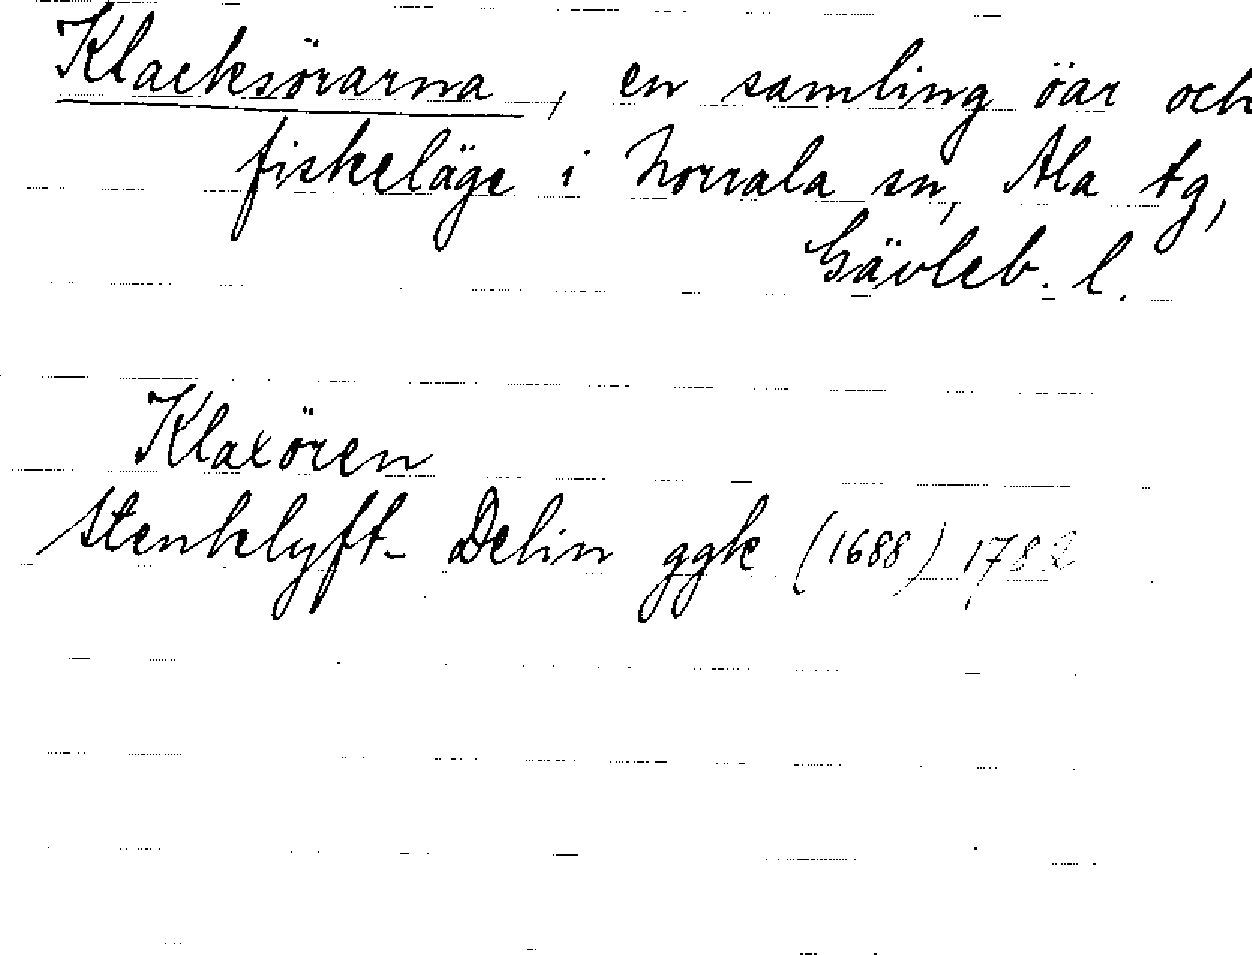 Klacksörarna, en samling öar och
fiskeläge i Norrala sn, Ala tg,
Gävleb. l.
Klaxören
Stenklyft- Delin ggk (1688) 1782